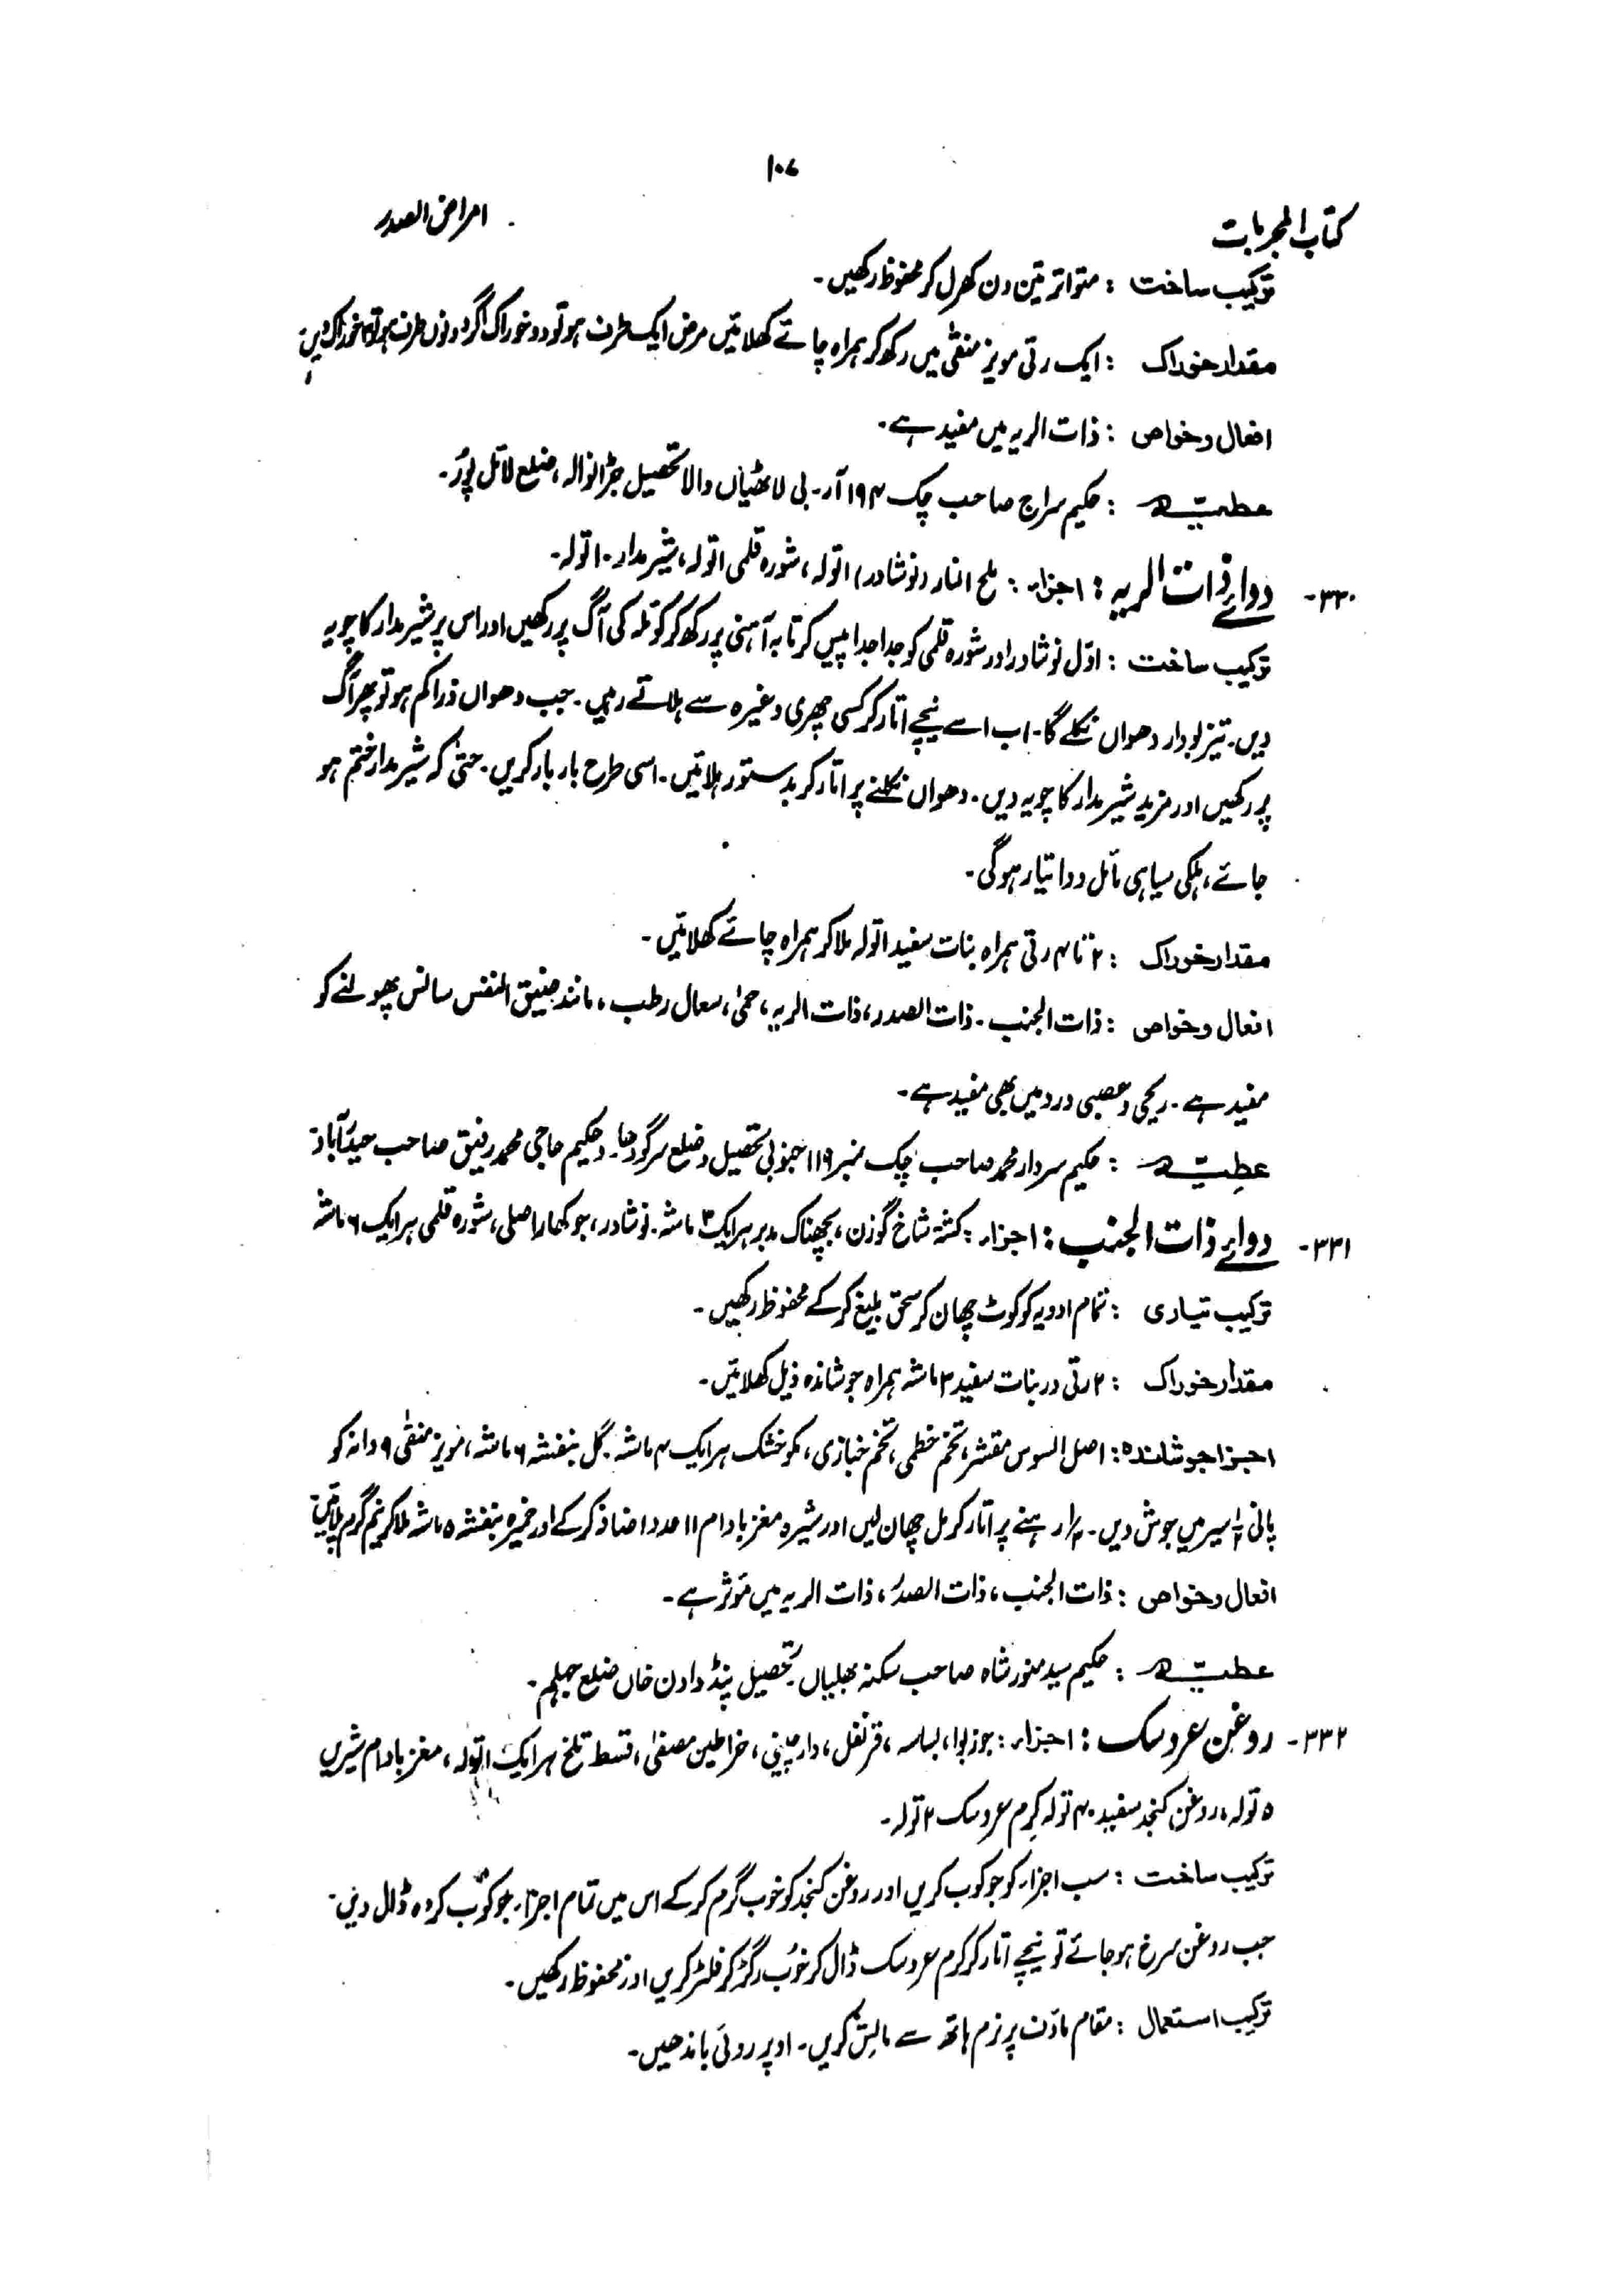 ۱۰۷
کتاب المجربات
امراض الصدر
ترکیب ساخت : متواتر تین دن کھرل کر محفوظ رکھیں۔
مقدار خوراک : ایک رتی مویز منقٰی میں رکھ کر ہمراہ چائے کھلائیں مرض ایک طرف ہو تو دو خوراک اگر دونوں طرف ہو تو خوراک دیں
افعال و خواص : ذات الریہ میں مفید ہے۔
عطیہ : حکیم سراج صاحب چک ۱۹۴ آر۔ بی لاٹھیاں والا تحصیل جڑانوالہ، ضلع لائل پور۔
۳۳۰- دوائے ذات الریہ : اجزاء : ملح النار (نوشادر) ۱ تولہ، شورہ قلمی ۱ تولہ، شیر مدار ۱۰ تولہ۔
ترکیب ساخت : اوّل نوشادر اور شورہ قلمی کو جدا جدا پیس کر تابہ آہنی پر رکھ کر کوئلہ کی آگ پر رکھیں اور اس پر شیر مدار کا چویہ
دیں۔ تیز بودار دھواں نکلے گا۔ اب اسے نیچے اتار کر کسی چھری وغیرہ سے ہلاتے رہیں۔ جب دھواں ذرا کم ہو تو پھر آگ
پر رکھیں اور مزید شیر مدار کا چویہ دیں۔ دھواں نکلنے پر اتار کر بدستور ہلائیں۔ اسی طرح بار بار کریں۔ حتٰی کہ شیر مدار ختم ہو
جائے، ہلکی سیاہی مائل دوا تیار ہوگی۔
مقدار خوراک : ۲ تا ۴ رتی ہمراہ بنات سفید ۱ تولہ ملا کر ہمراہ چائے کھلائیں۔
افعال و خواص : ذات الجنب۔ ذات الصدر، ذات الریہ، حمیٰ، سعال رطب، مانند ضیق النفس سانس پھولنے کو
مفید ہے۔ ریحی و عصبی درد میں بھی مفید ہے۔
عطیہ : حکیم سردار محمد صاحب چک نمبر ۱۱۹ جنوبی تحصیل و ضلع سرگودھا۔ و حکیم حاجی محمد رفیق صاحب حیدرآباد۔
۳۳۱- دوائے ذات الجنب : اجزاء : کشتہ شاخ گوزن، بچھناک مدبر ہر ایک ۳ ماشہ۔ نوشادر، جوکھار اصلی، شورہ قلمی ہر ایک ۶ ماشہ
ترکیب تیاری : تمام ادویہ کو کوٹ چھان کر سحق بلیغ کر کے محفوظ رکھیں۔
مقدار خوراک : ۲ رتی در بنات سفید ۳ ماشہ ہمراہ جوشاندہ ذیل کھلائیں۔
اجزا جوشاندہ : اصل السوس مقشر، تخم خطمی، تخم خبازی، مکو خشک ہر ایک ۴ ماشہ۔ گل بنفشہ ۶ ماشہ، مویز منقٰی ۹ دانہ کو
پانی سیر میں جوش دیں۔ رہنے پر اتار کر مل چھان لیں اور شیرہ مغز بادام ۱۱ عدد اضافہ کر کے اور خمیرہ بنفشہ ۵ ماشہ ملا کر نیم گرم پلائیں
افعال و خواص : ذات الجنب، ذات الصدر، ذات الریہ میں مؤثر ہے۔
عطیہ : حکیم سید منور شاہ صاحب سکنہ بھلیاں۔ تحصیل پنڈ دادن خاں ضلع جہلم۔
۳۳۲- روغن عروسک : اجزاء : جوزبوا، بساسہ، قرنفل، دارچینی، خراطین مصفٰی، قسط تلخ ہر ایک ۱ تولہ، مغز بادام شیریں
۵ تولہ، روغن کنجد سفید ۴۰ تولہ کرم عروسک ۲ تولہ۔
ترکیب ساخت : سب اجزاء کو جوکوب کریں اور روغن کنجد کو خوب گرم کر کے اس میں تمام اجزاء جوکوب کردہ ڈال دیں۔
جب روغن سرخ ہو جائے تو نیچے اتار کر کرم عروسک ڈال کر خوب رگڑ کر فلٹر کریں اور محفوظ رکھیں۔
ترکیب استعمال : مقام ماؤف پر نرم ہاتھ سے مالش کریں۔ اوپر روئی باندھیں۔